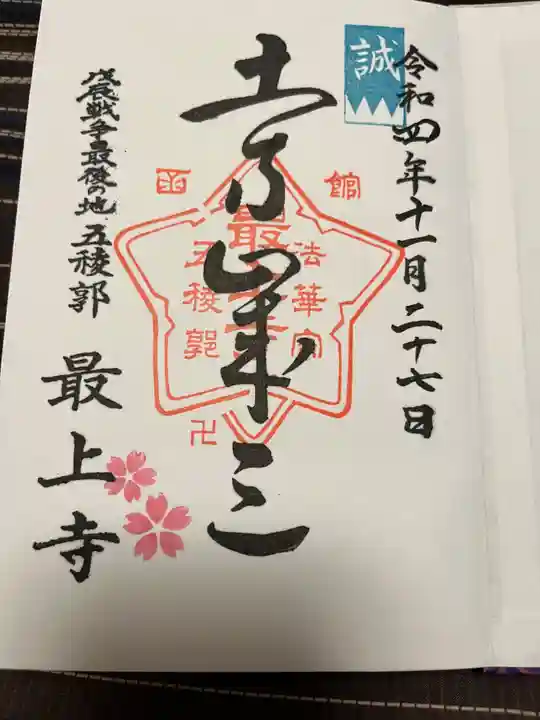 令和四年十一月二十七日
誠
土方歳三
函館
法華宗
最上寺
五稜郭
卍
戊辰戦争最後の地 五稜郭
最上寺